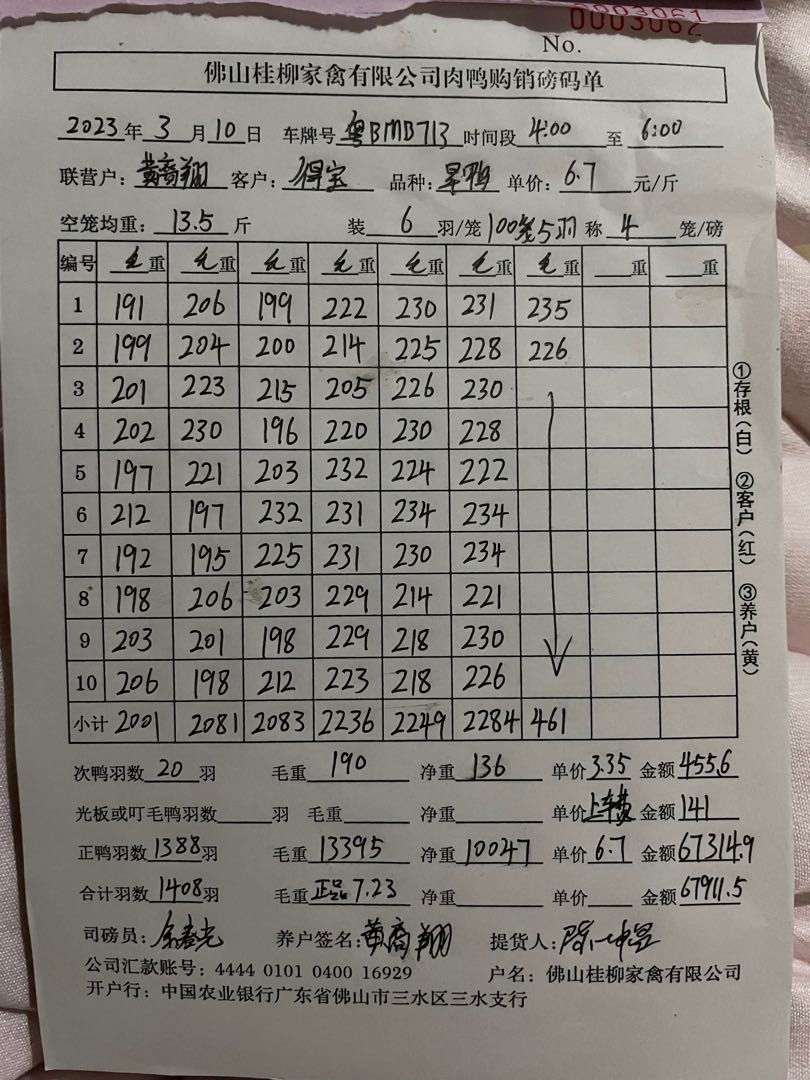 0003061
0003062
No.
佛山桂柳家禽有限公司肉鸭购销磅码单
2023年3月10日 车牌号粤BMB713时间段4:00至6:00
联营户:黄裔翔 客户:得宝 品种:旱鸭 单价:6.7元/斤
空笼均重:13.5斤 装6羽/笼100笼5羽称4笼/磅
编号 毛重 毛重 毛重 毛重 毛重 毛重 毛重 重 重
1 191 206 199 222 230 231 235
2 199 204 200 214 225 228 226
3 201 223 215 205 226 230
4 202 230 196 220 230 228
5 197 221 203 232 224 222
6 212 197 232 231 234 234
7 192 195 225 231 230 234
8 198 206 203 229 214 221
9 203 201 198 229 218 230
10 206 198 212 223 218 226
小计 2001 2081 2083 2236 2249 2284 461
①存根(白) ②客户(红) ③养户(黄)
次鸭羽数20羽 毛重190 净重136 单价3.35 金额455.6
光板或叮毛鸭羽数 羽 毛重 净重 单价上车费 金额141
正鸭羽数1388羽 毛重13395 净重10047 单价6.7 金额67314.9
合计羽数1408羽 毛重正品7.23 净重 单价 金额67911.5
司磅员:余春光 养户签名:黄裔翔 提货人:
公司汇款账号:4444 0101 0400 16929 户名:佛山桂柳家禽有限公司
开户行:中国农业银行广东省佛山市三水区三水支行